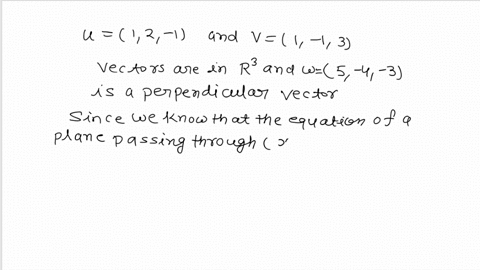 u = (1, 2, -1) and V = (1, -1, 3)
vectors are in R³ and ω=(5,-4,-3)
is a perpendicular vector
Since we know that the equation of a
plane passing through (x